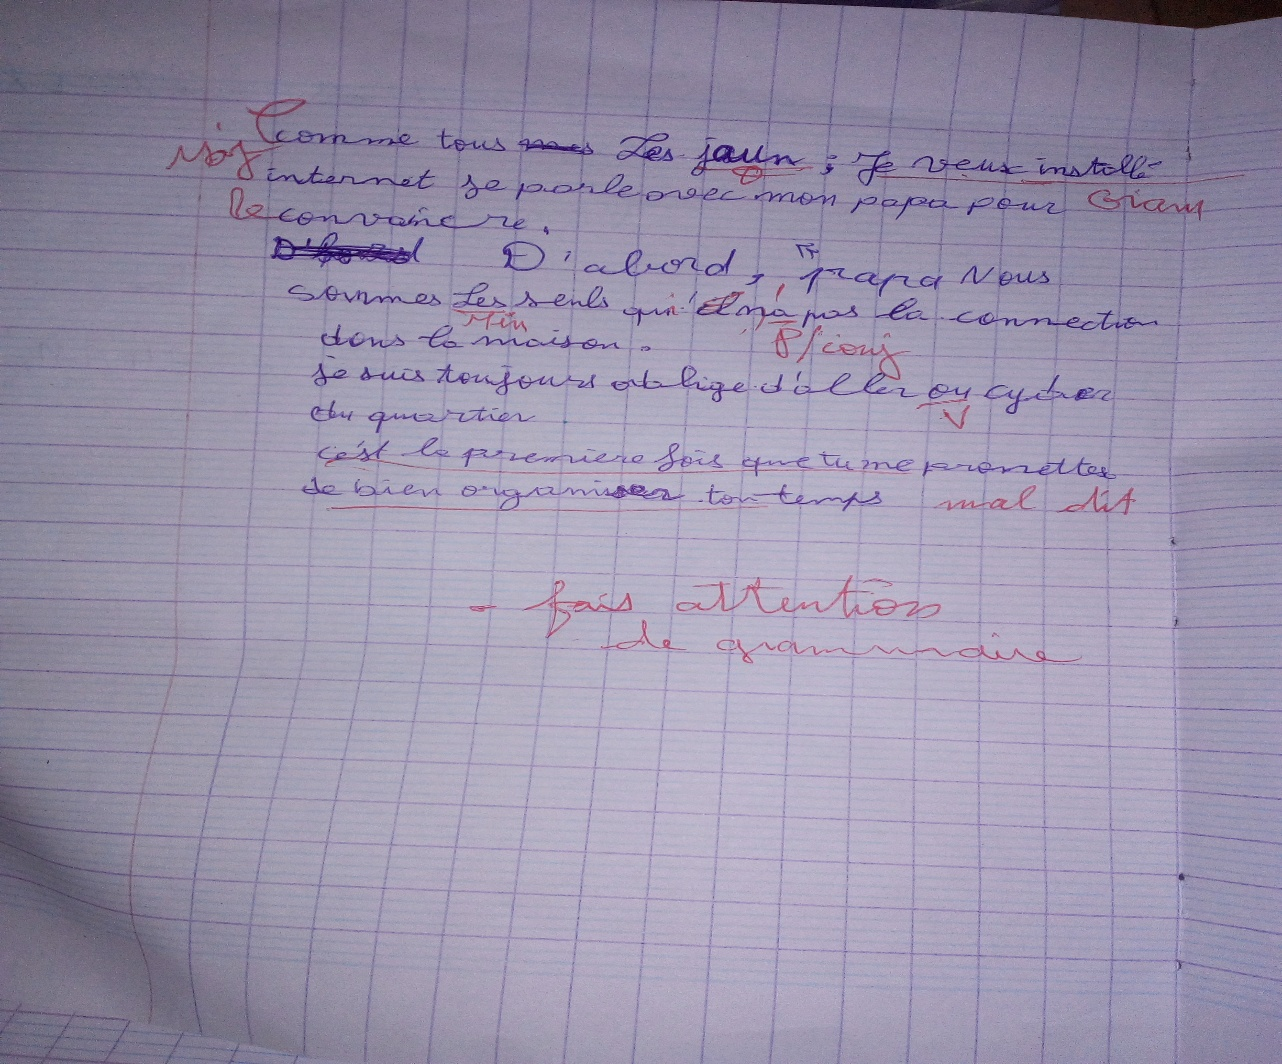 comme tous Les jaun ; Je veux installé
Maj internet je parle avec mon papa pour Gram
le convaincre.
D'abord D'abord, papa Nous
sommes Les seuls qui n'a pas la connection
Min
dans la maison. P/conj
je suis toujours oblige d'aller ou cyber
du quartier V
c'est la premiere fois que tu me promettes
de bien organiser ton temps mal dit
- fais attention
de grammaire